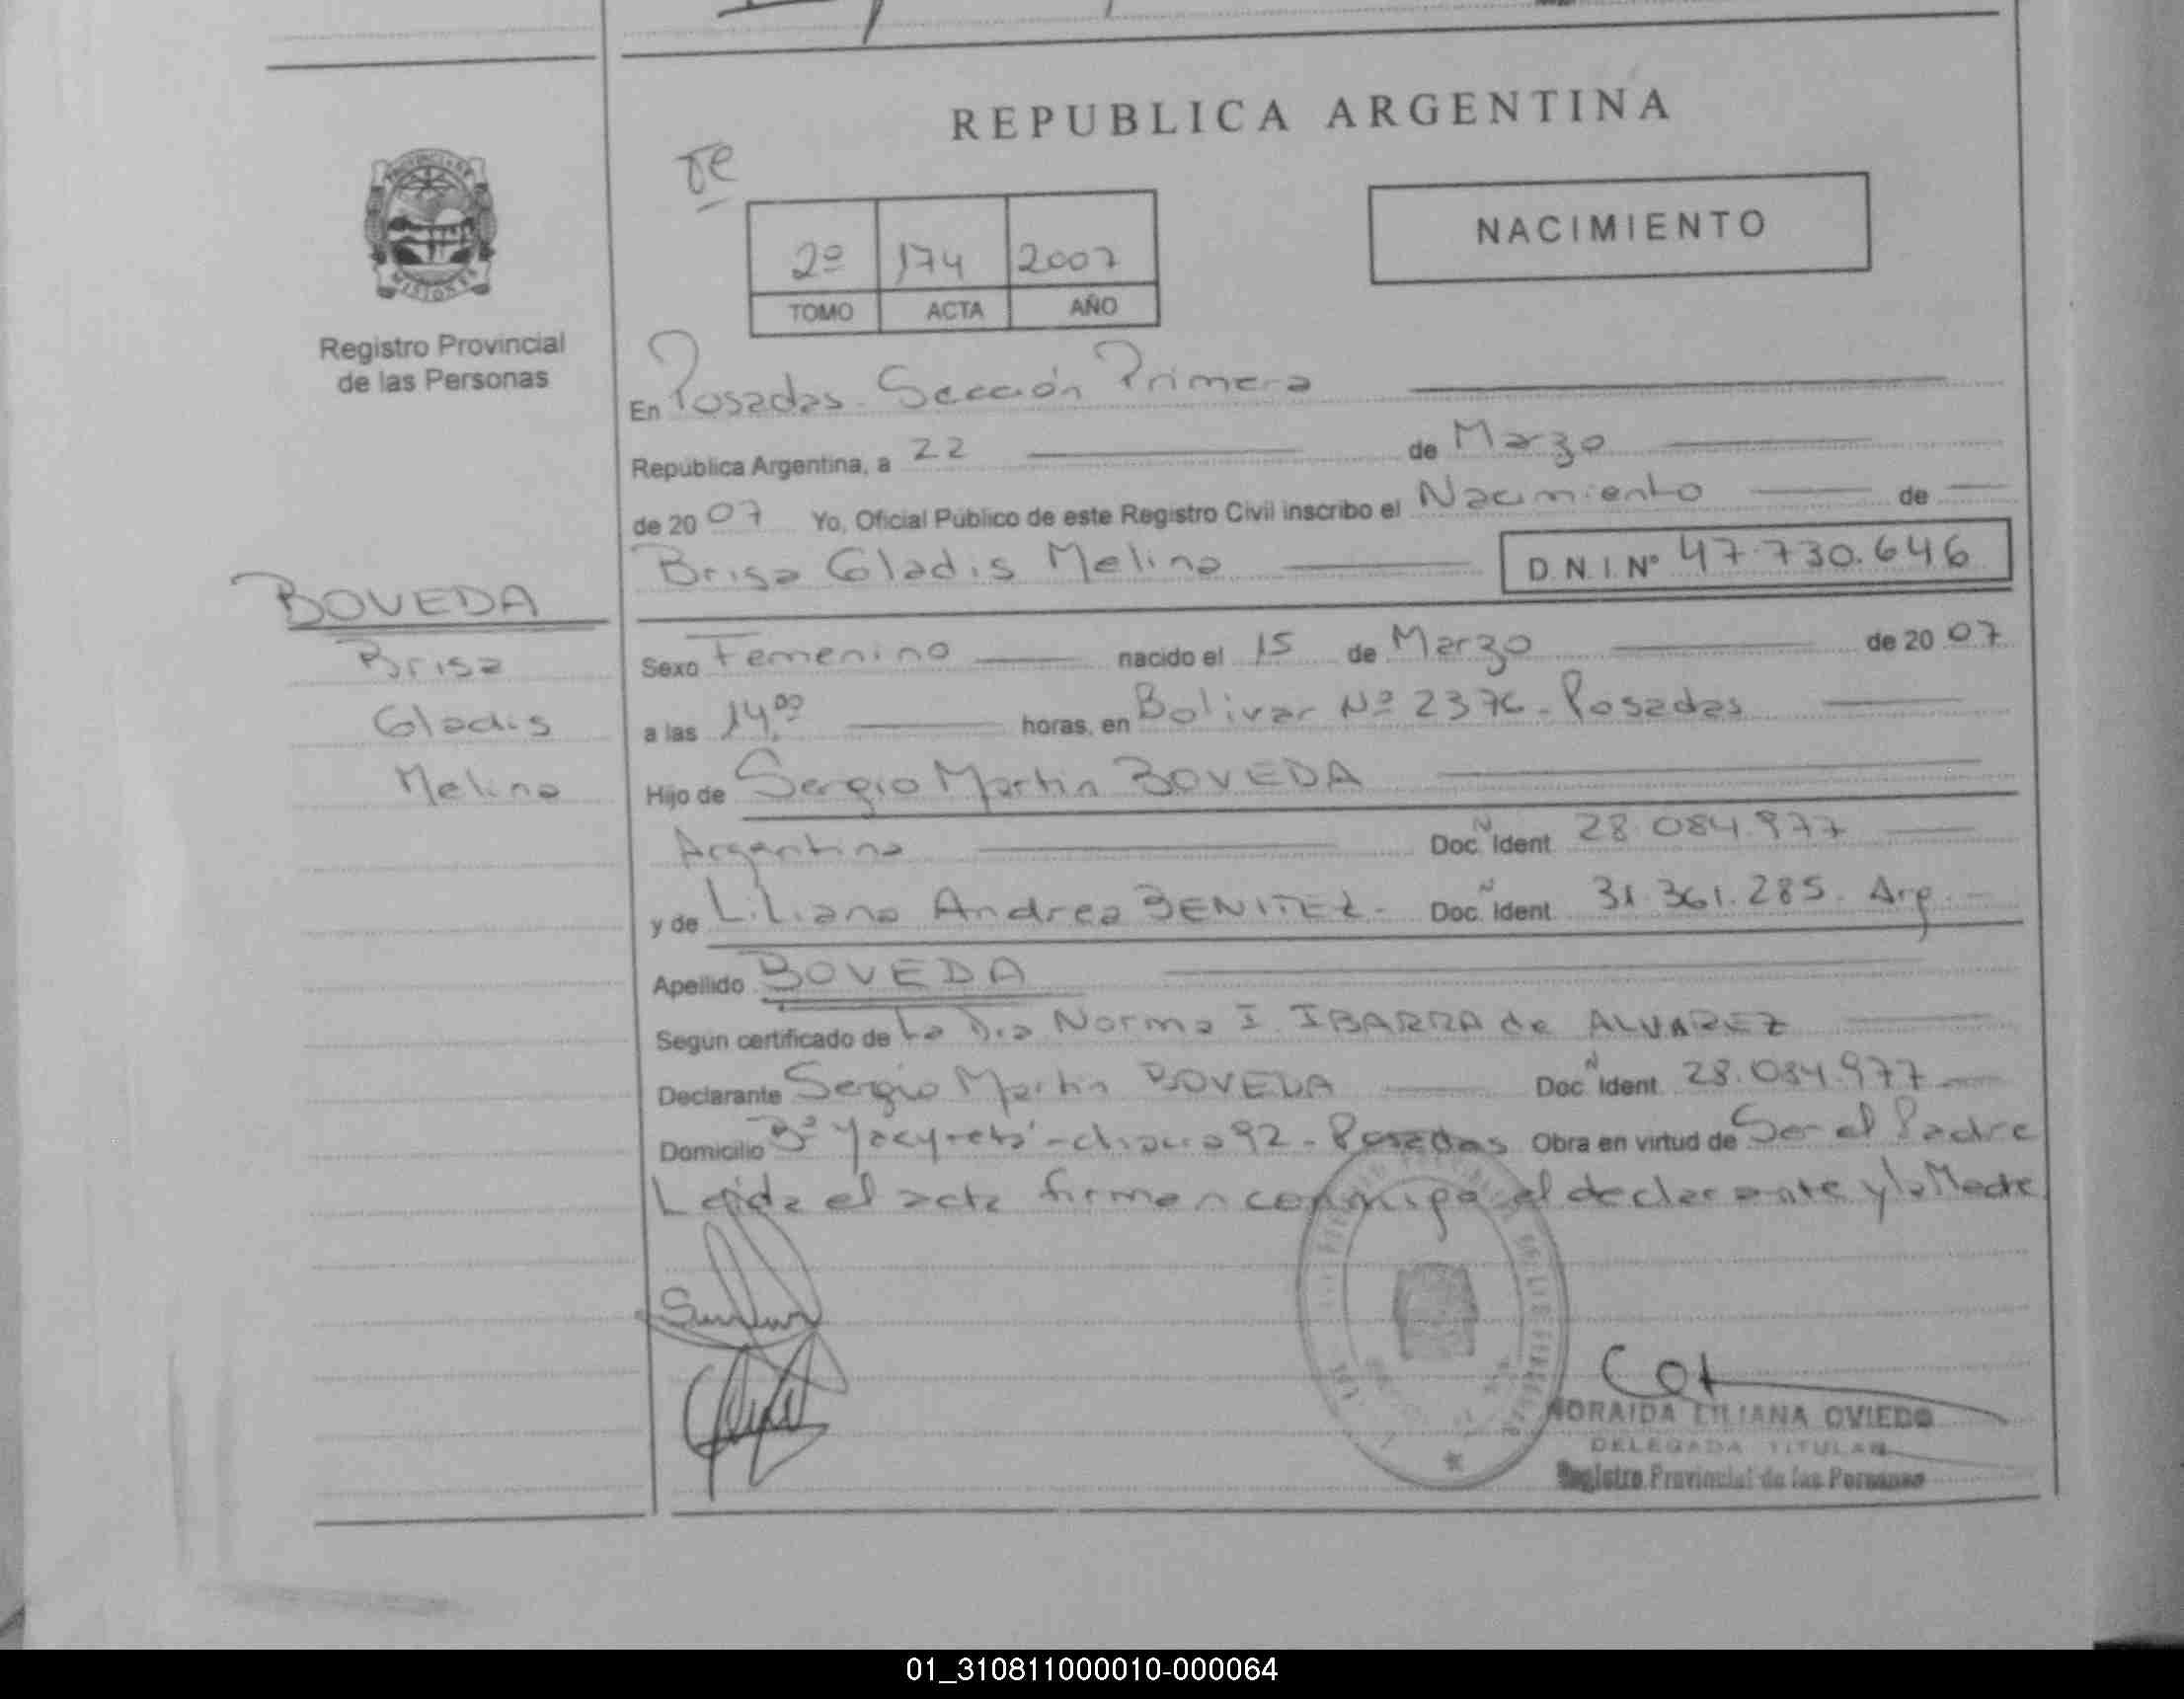 REPUBLICA ARGENTINA
NACIMIENTO
2º 174 2007
TOMO ACTA AÑO
Registro Provincial
de las Personas
En Posadas Sección Primera
Republica Argentina, a 22 de Marzo
de 2007 Yo, Oficial Público de este Registro Civil inscribo el Nacimiento de
Brisa Gladis Melina D.N.I. Nº 47.730.646
BOVEDA
Brisa
Gladis
Melina
Sexo Femenino nacido el 15 de Marzo de 2007
a las 14,00 horas, en Bolivar Nº 2376 - Posadas
Hijo de Sergio Martin BOVEDA
Argentina Doc. N Ident. 28.084.977
y de Liliana Andrea BENITEZ - Doc. N Ident. 31.361.285. Arg.
Apellido BOVEDA
Segun certificado de La Norma I. IBARRA de ALVAREZ
Declarante Sergio Martin BOVEDA Doc. N Ident. 28.084.977
Domicilio Bº Yacyretá - chacra 92 - Posadas Obra en virtud de Ser el Padre
Leida el acta firman conmigo el declarante y la Madre
NORAIDA LILIANA OVIEDO
DELEGADA TITULAR
Registro Provincial de las Personas
01_310811000010-000064